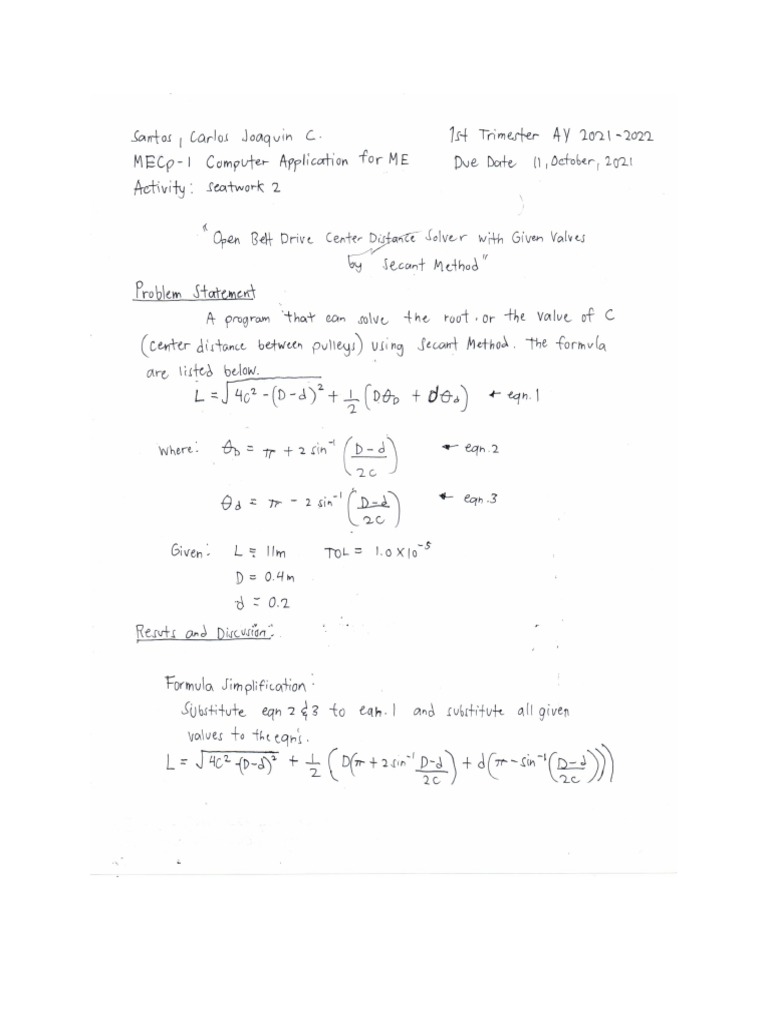 Santos, Carlos Joaquin C. 1st Trimester AY 2021-2022
MECp-1 Computer Application for ME Due Date 11, October, 2021
Activity: Seatwork 2
"Open Belt Drive Center Distance Solver with Given Valves
by Secant Method"
Problem Statement
A program that can solve the root, or the value of C
(center distance between pulleys) using Secant Method. The formula
are listed below.
L = √(4C² - (D-d)²) + 1/2 (Dθ_D + dθ_d) ← eqn.1
Where: θ_D = π + 2 sin⁻¹ ((D-d)/2C) ← eqn.2
θ_d = π - 2 sin⁻¹ ((D-d)/2C) ← eqn.3
Given: L = 11m TOL = 1.0 x 10⁻⁵
D = 0.4m
d = 0.2
Resuts and Discusion:
Formula Simplification:
Substitute eqn 2 & 3 to eqn. 1 and substitute all given
values to the eqn's.
L = √(4C² - (D-d)²) + 1/2 (D(π + 2 sin⁻¹ (D-d)/2C) + d(π - sin⁻¹ ((D-d)/2C)))